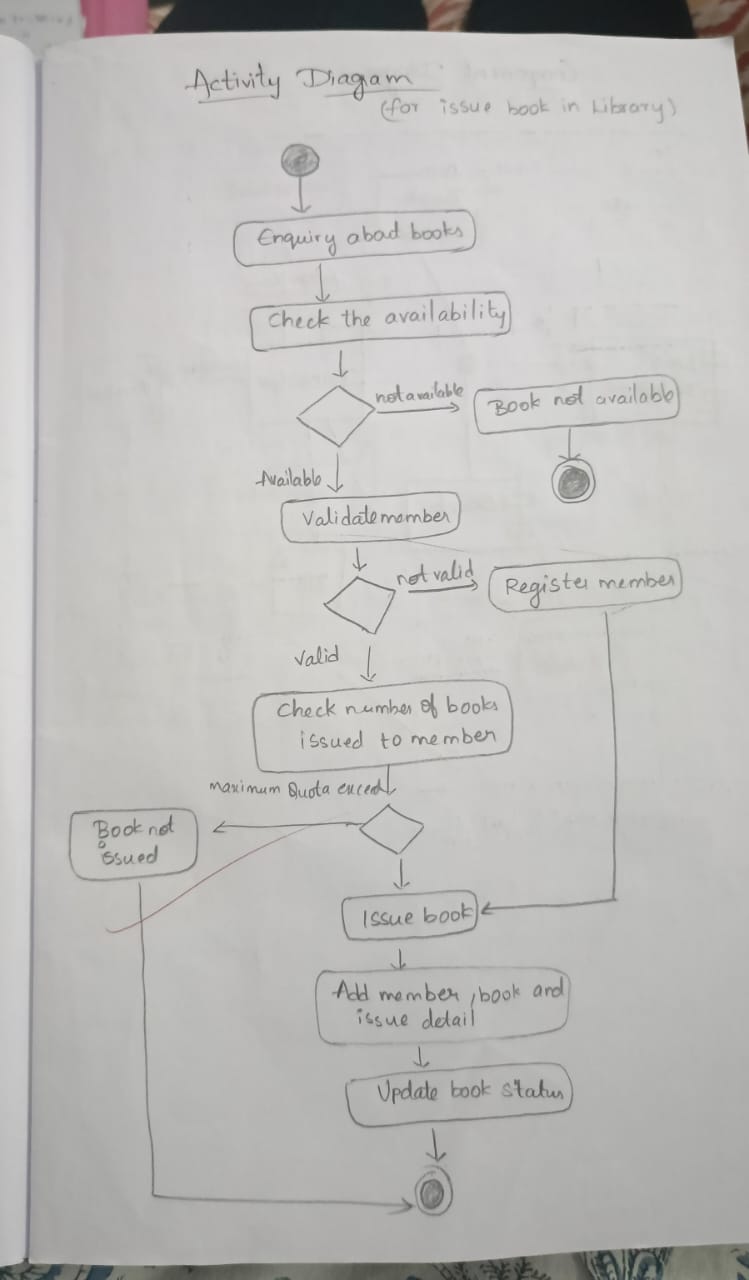 Activity Diagam
(for issue book in Library)
Enquiry abad books
Check the availability
not available
Book not available
Available
Validate member
not valid
Register member
valid
Check number of books
issued to member
maximum Quota exced
Book not
issued
Issue book
Add member, book and
issue detail
Update book status